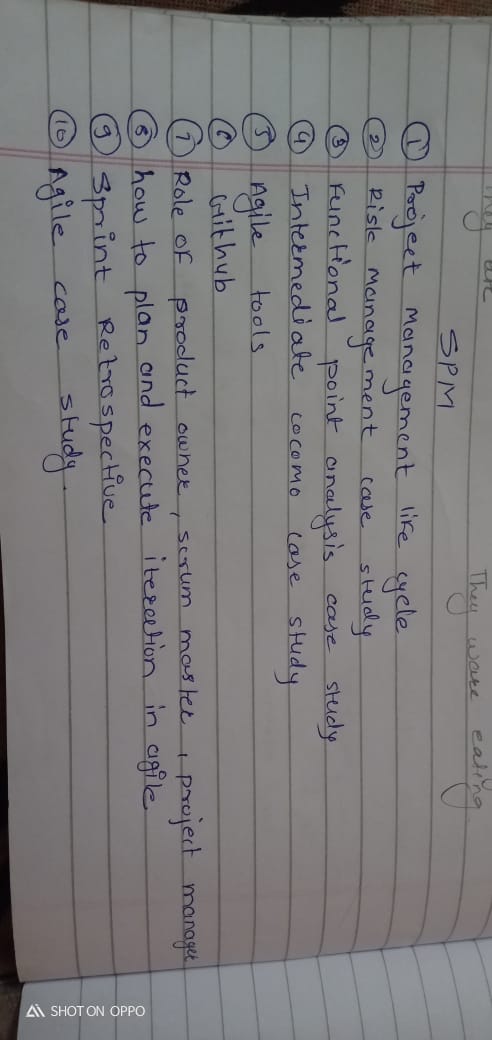 They are
They ware eating
SPM
① Project Management like cycle
② Risk Management case study
③ Functional point analysis case study
④ Intermediate cocomo case study
⑤ Agile tools
⑥ Github
⑦ Role of product owner, scrum master, project manager
⑧ how to plan and execute itereation in agile
⑨ Sprint Retrospective
⑩ Agile case study.
SHOT ON OPPO